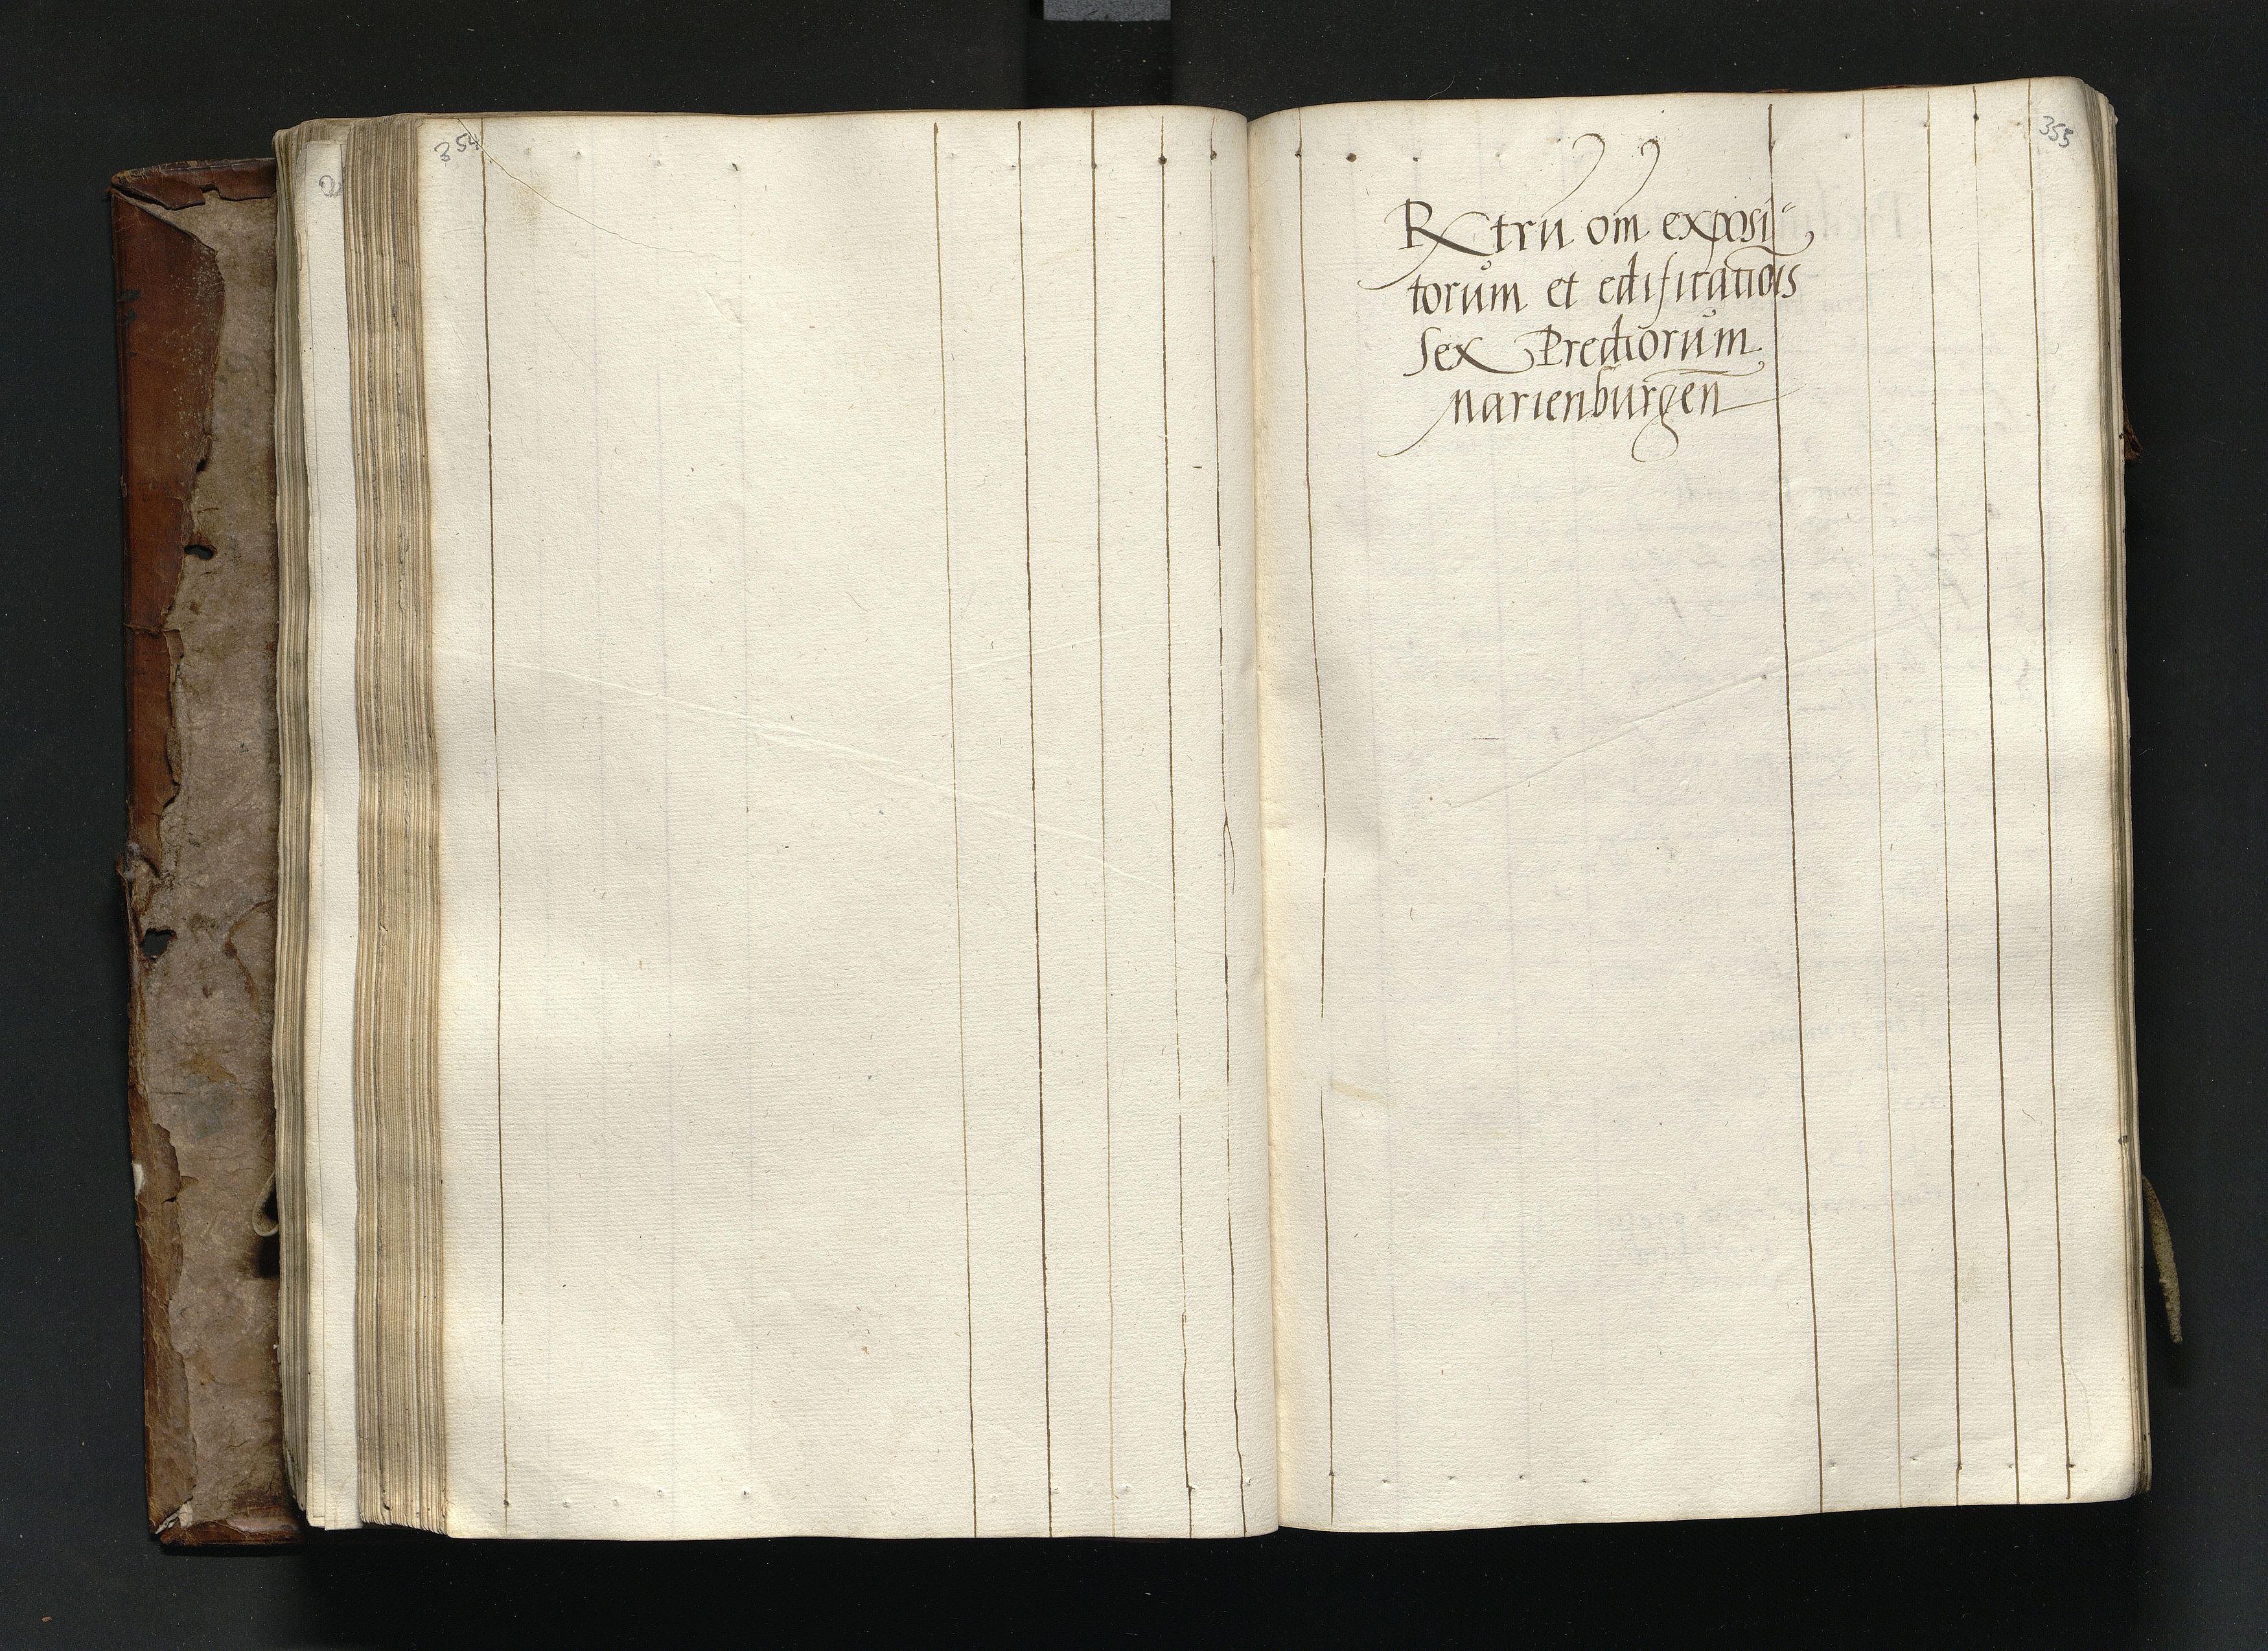 354
355
Rxtru om exposi-
torum et edificationis
Sex Prediorum
Marienburgen